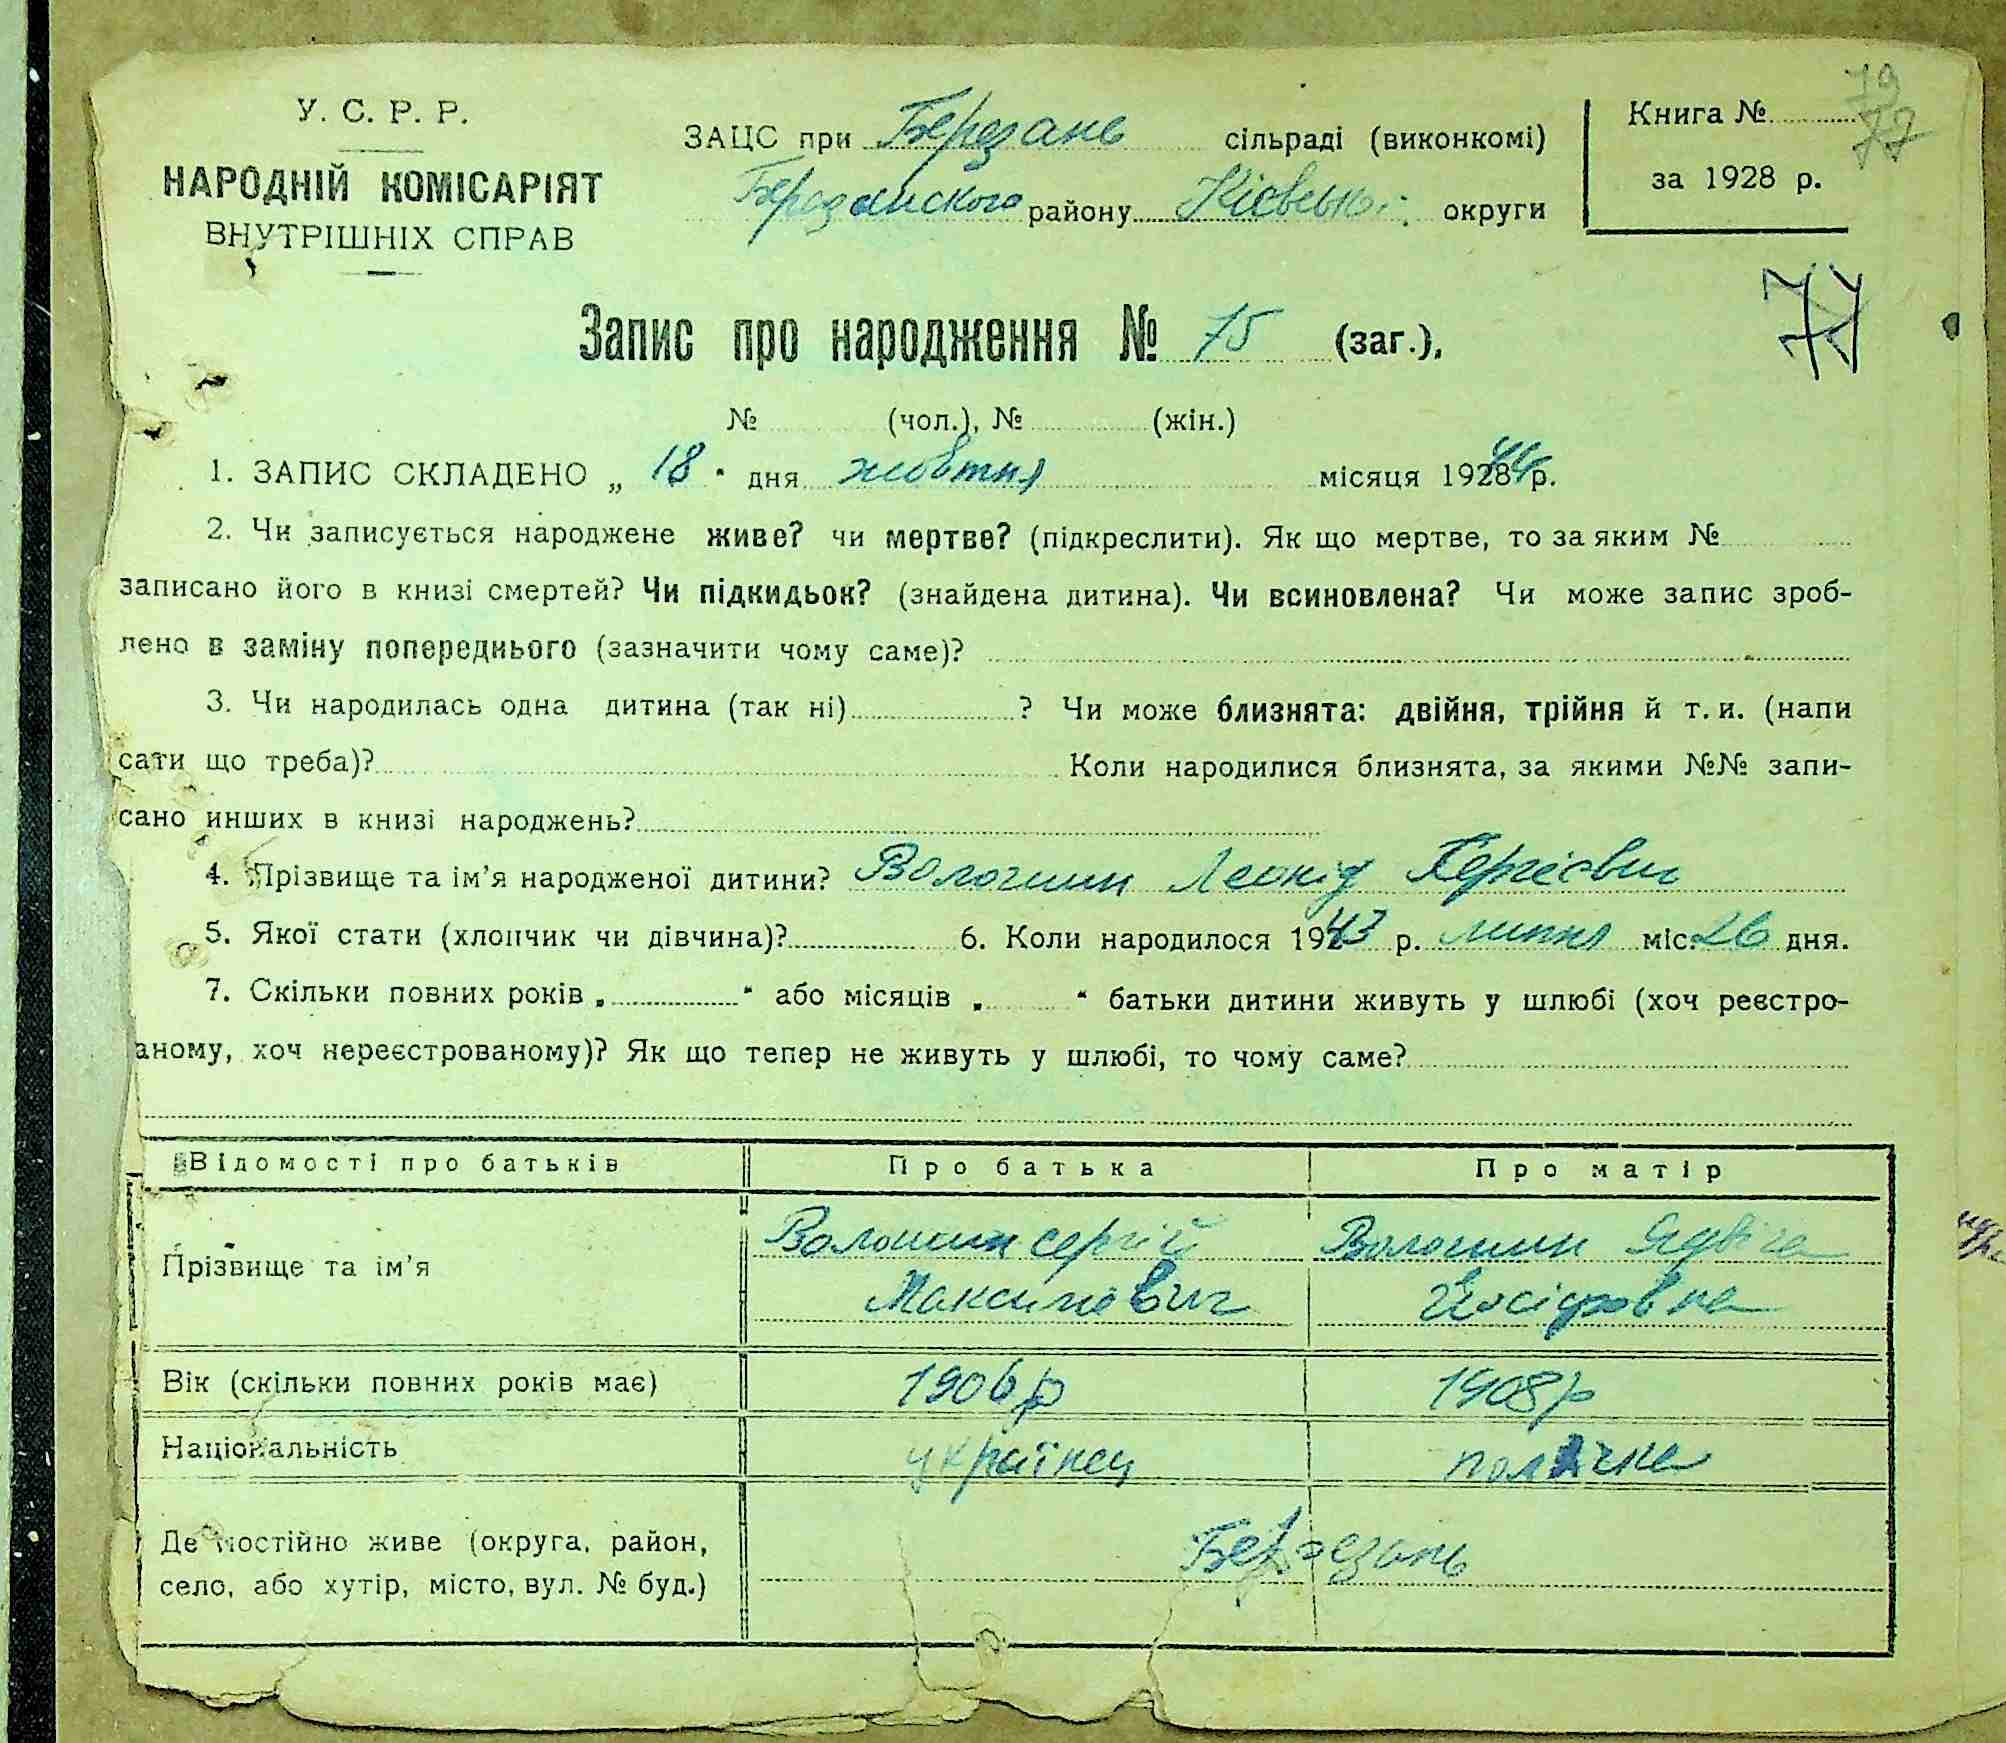 У. С. Р. Р.
НАРОДНІЙ КОМІСАРІЯТ
ВНУТРІШНІХ СПРАВ
ЗАЦС при Березань сільраді (виконкомі)
Березанского району Кієвської округи
Книга №
за 1928 р.
79
77
77
Запис про народження № 75 (заг.),
№ (чол.), № (жін.)
1. ЗАПИС СКЛАДЕНО „ 18 " дня жовтня місяця 192844 р.
2. Чи записується народжене живе? чи мертве? (підкреслити). Як що мертве, то за яким №
записано його в книзі смертей? Чи підкидьок? (знайдена дитина). Чи всиновлена? Чи може запис зроб-
лено в заміну попереднього (зазначити чому саме)?
3. Чи народилась одна дитина (так ні) ? Чи може близнята: двійня, трійня й т. и. (напи
сати що треба)? Коли народилися близнята, за якими №№ запи-
сано инших в книзі народжень?
4. Прізвище та ім'я народженої дитини? Волошин Леонід Сергієвич
5. Якої стати (хлопчик чи дівчина)? 6. Коли народилося 1943 р. липня міс. 26 дня.
7. Скільки повних років „ " або місяців „ " батьки дитини живуть у шлюбі (хоч реєстро-
аному, хоч нереєстрованому)? Як що тепер не живуть у шлюбі, то чому саме?
Відомості про батьків Про батька Про матір
Прізвище та ім'я Волошин Сергій Волошин Ядвіга
Максимович Йосіфовна
Вік (скільки повних років має) 1906р 1908р
Національність українец полячка
Де постійно живе (округа, район,
село, або хутір, місто, вул. № буд.) Березань